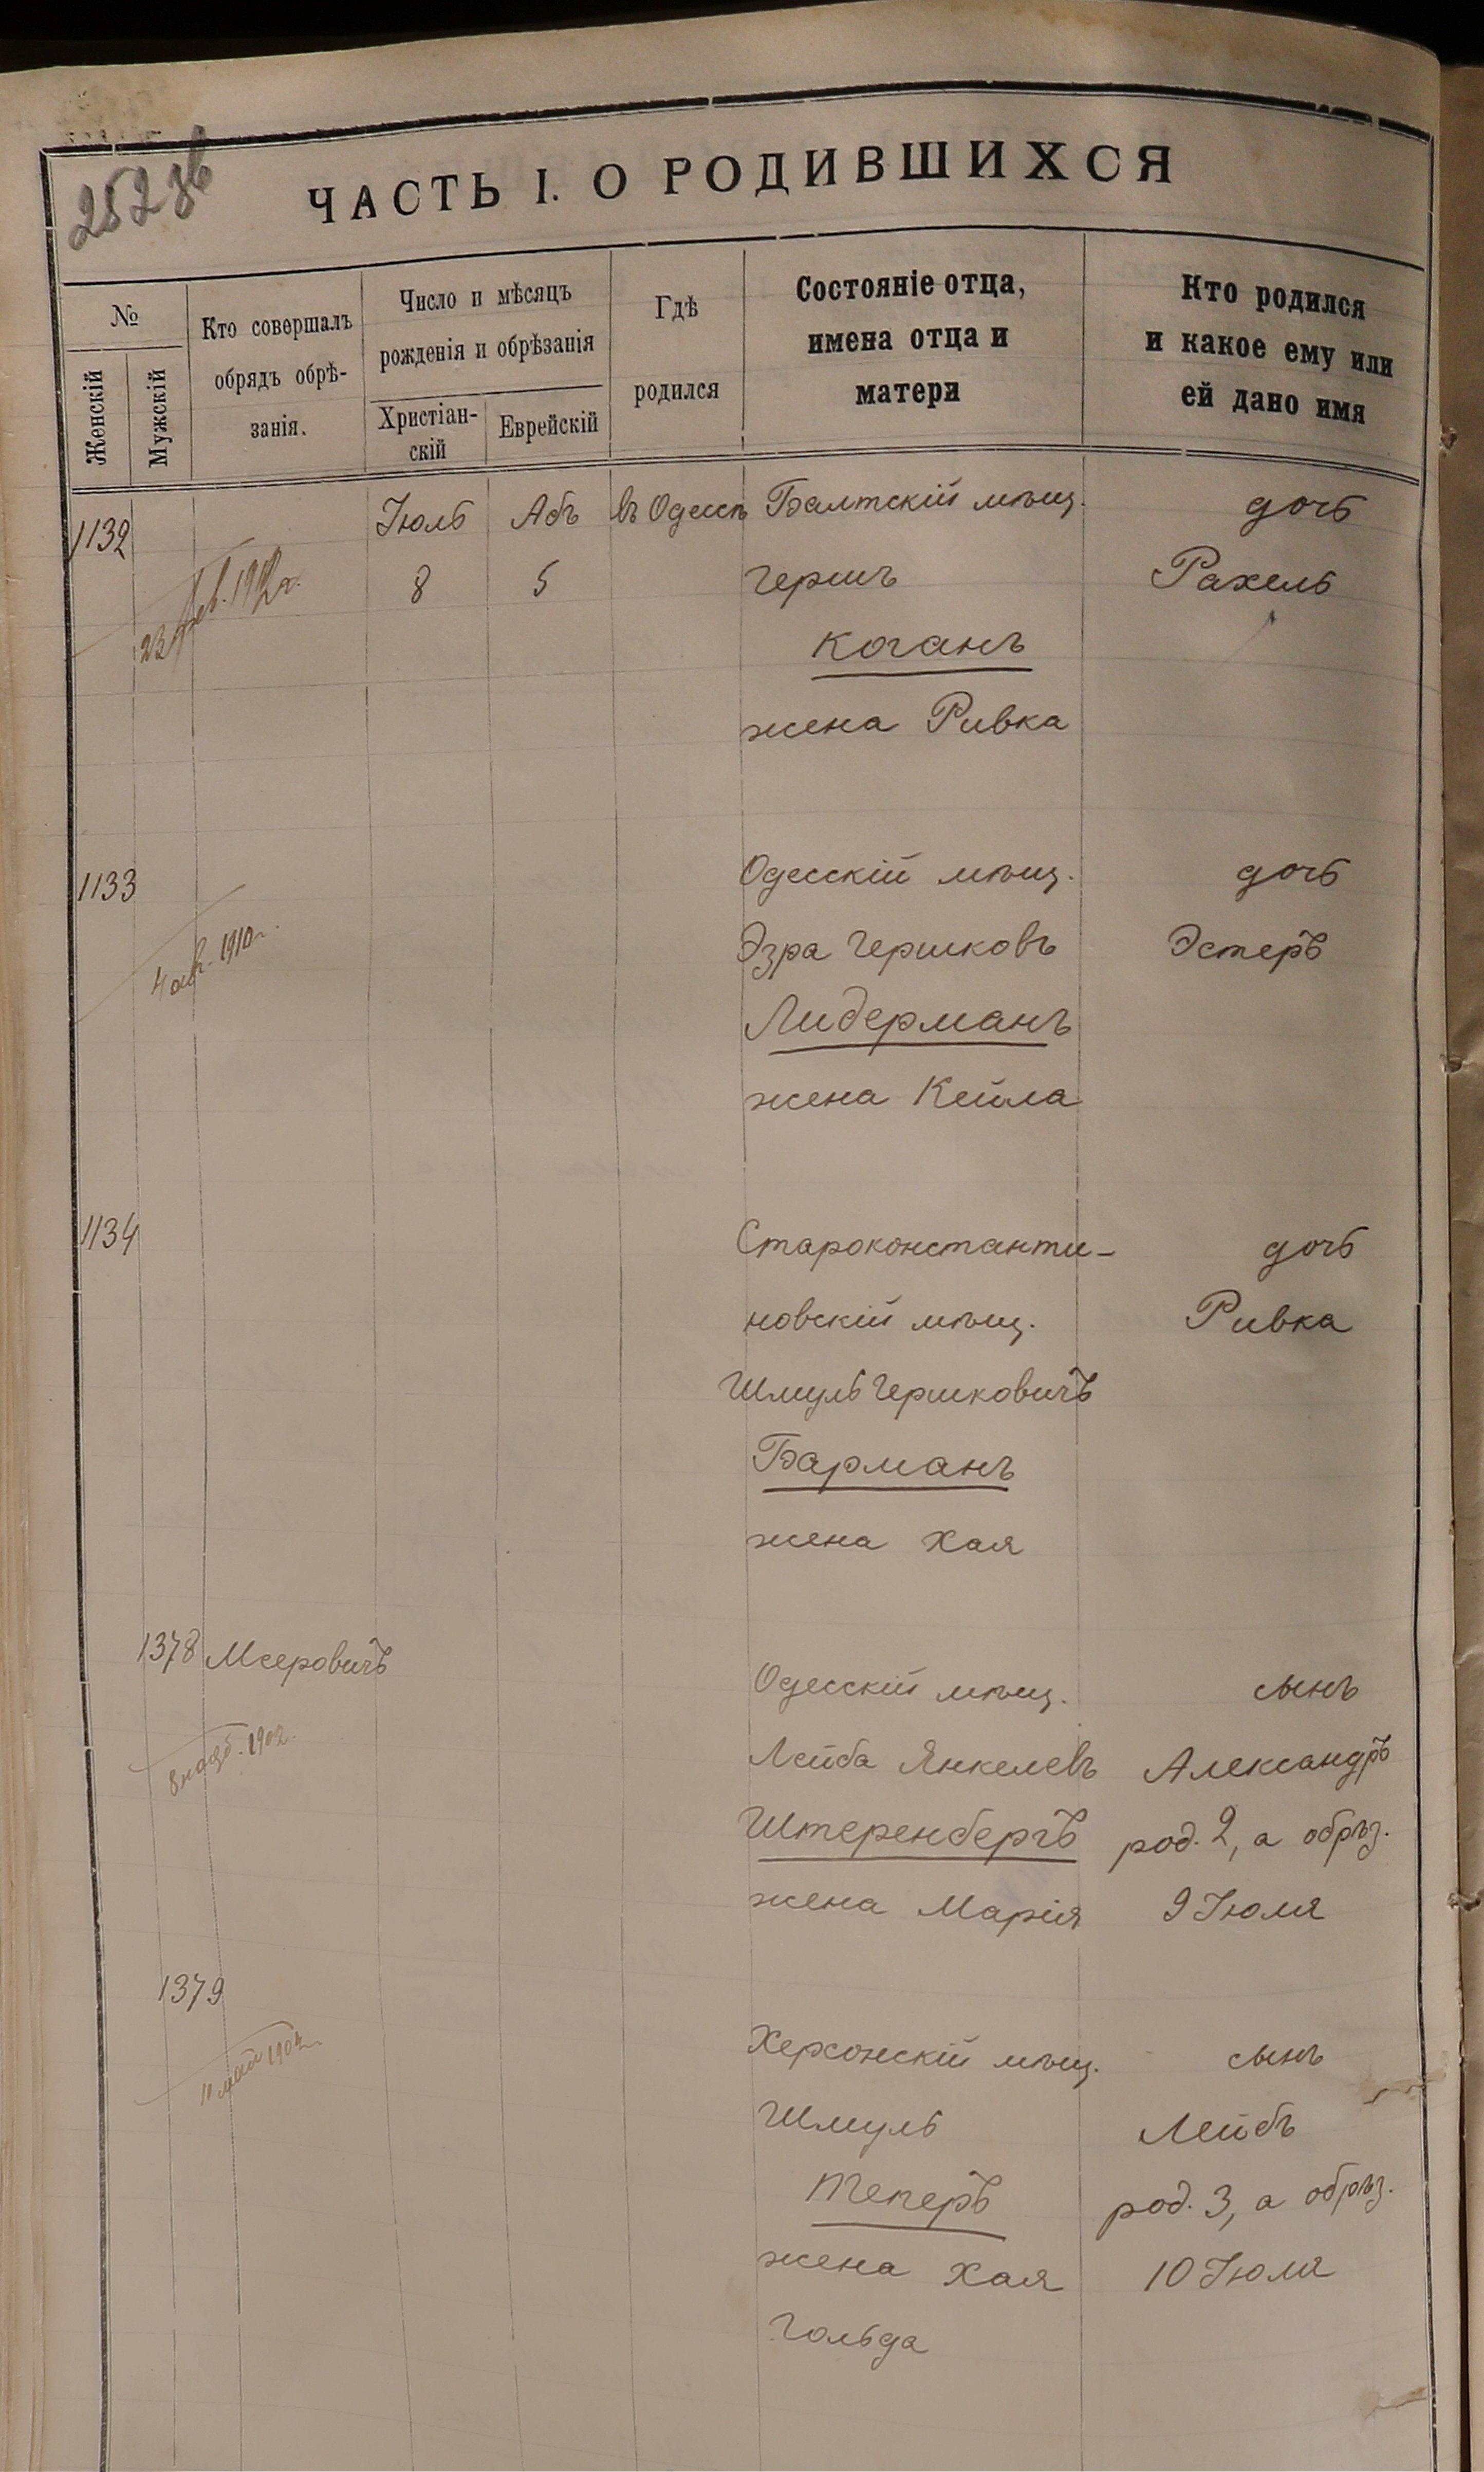 252 зв
ЧАСТЬ I. О РОДИВШИХСЯ
№
Женскій
Мужскій
Кто совершалъ
обрядъ обрѣ-
занія.
Число и мѣсяцъ
рожденія и обрѣзанія
Христіан-
скій
Еврейскій
Гдѣ
родился
Состояніе отца,
имена отца и
матери
Кто родился
и какое ему или
ей дано имя
1132 Іюль Абъ въ Одессѣ Балтскій мѣщ. дочь
8 5 Гершъ Рахель
23 фев. 1912 г.
Коганъ
жена Ривка
1133 Одесскій мѣщ. дочь
4 авг. 1910 г.
Эзра Гершковъ Эстеръ
Лидерманъ
жена Кейла
1134 Староконстанти- дочь
новскій мѣщ. Ривка
Шмуль Гершковичъ
Барманъ
жена Хая
1378 Мееровичъ
Одесскій мѣщ. сынъ
1902
Лейба Янкелевъ Александръ
Штеренбергъ род. 2, а обрѣз.
жена Марія 9 Іюля
1379
Херсонскій мѣщ. сынъ
11 май
Шмуль Лейбъ
Теперъ род. 3, а обрѣз.
жена Хая 10 Іюля
Гольда